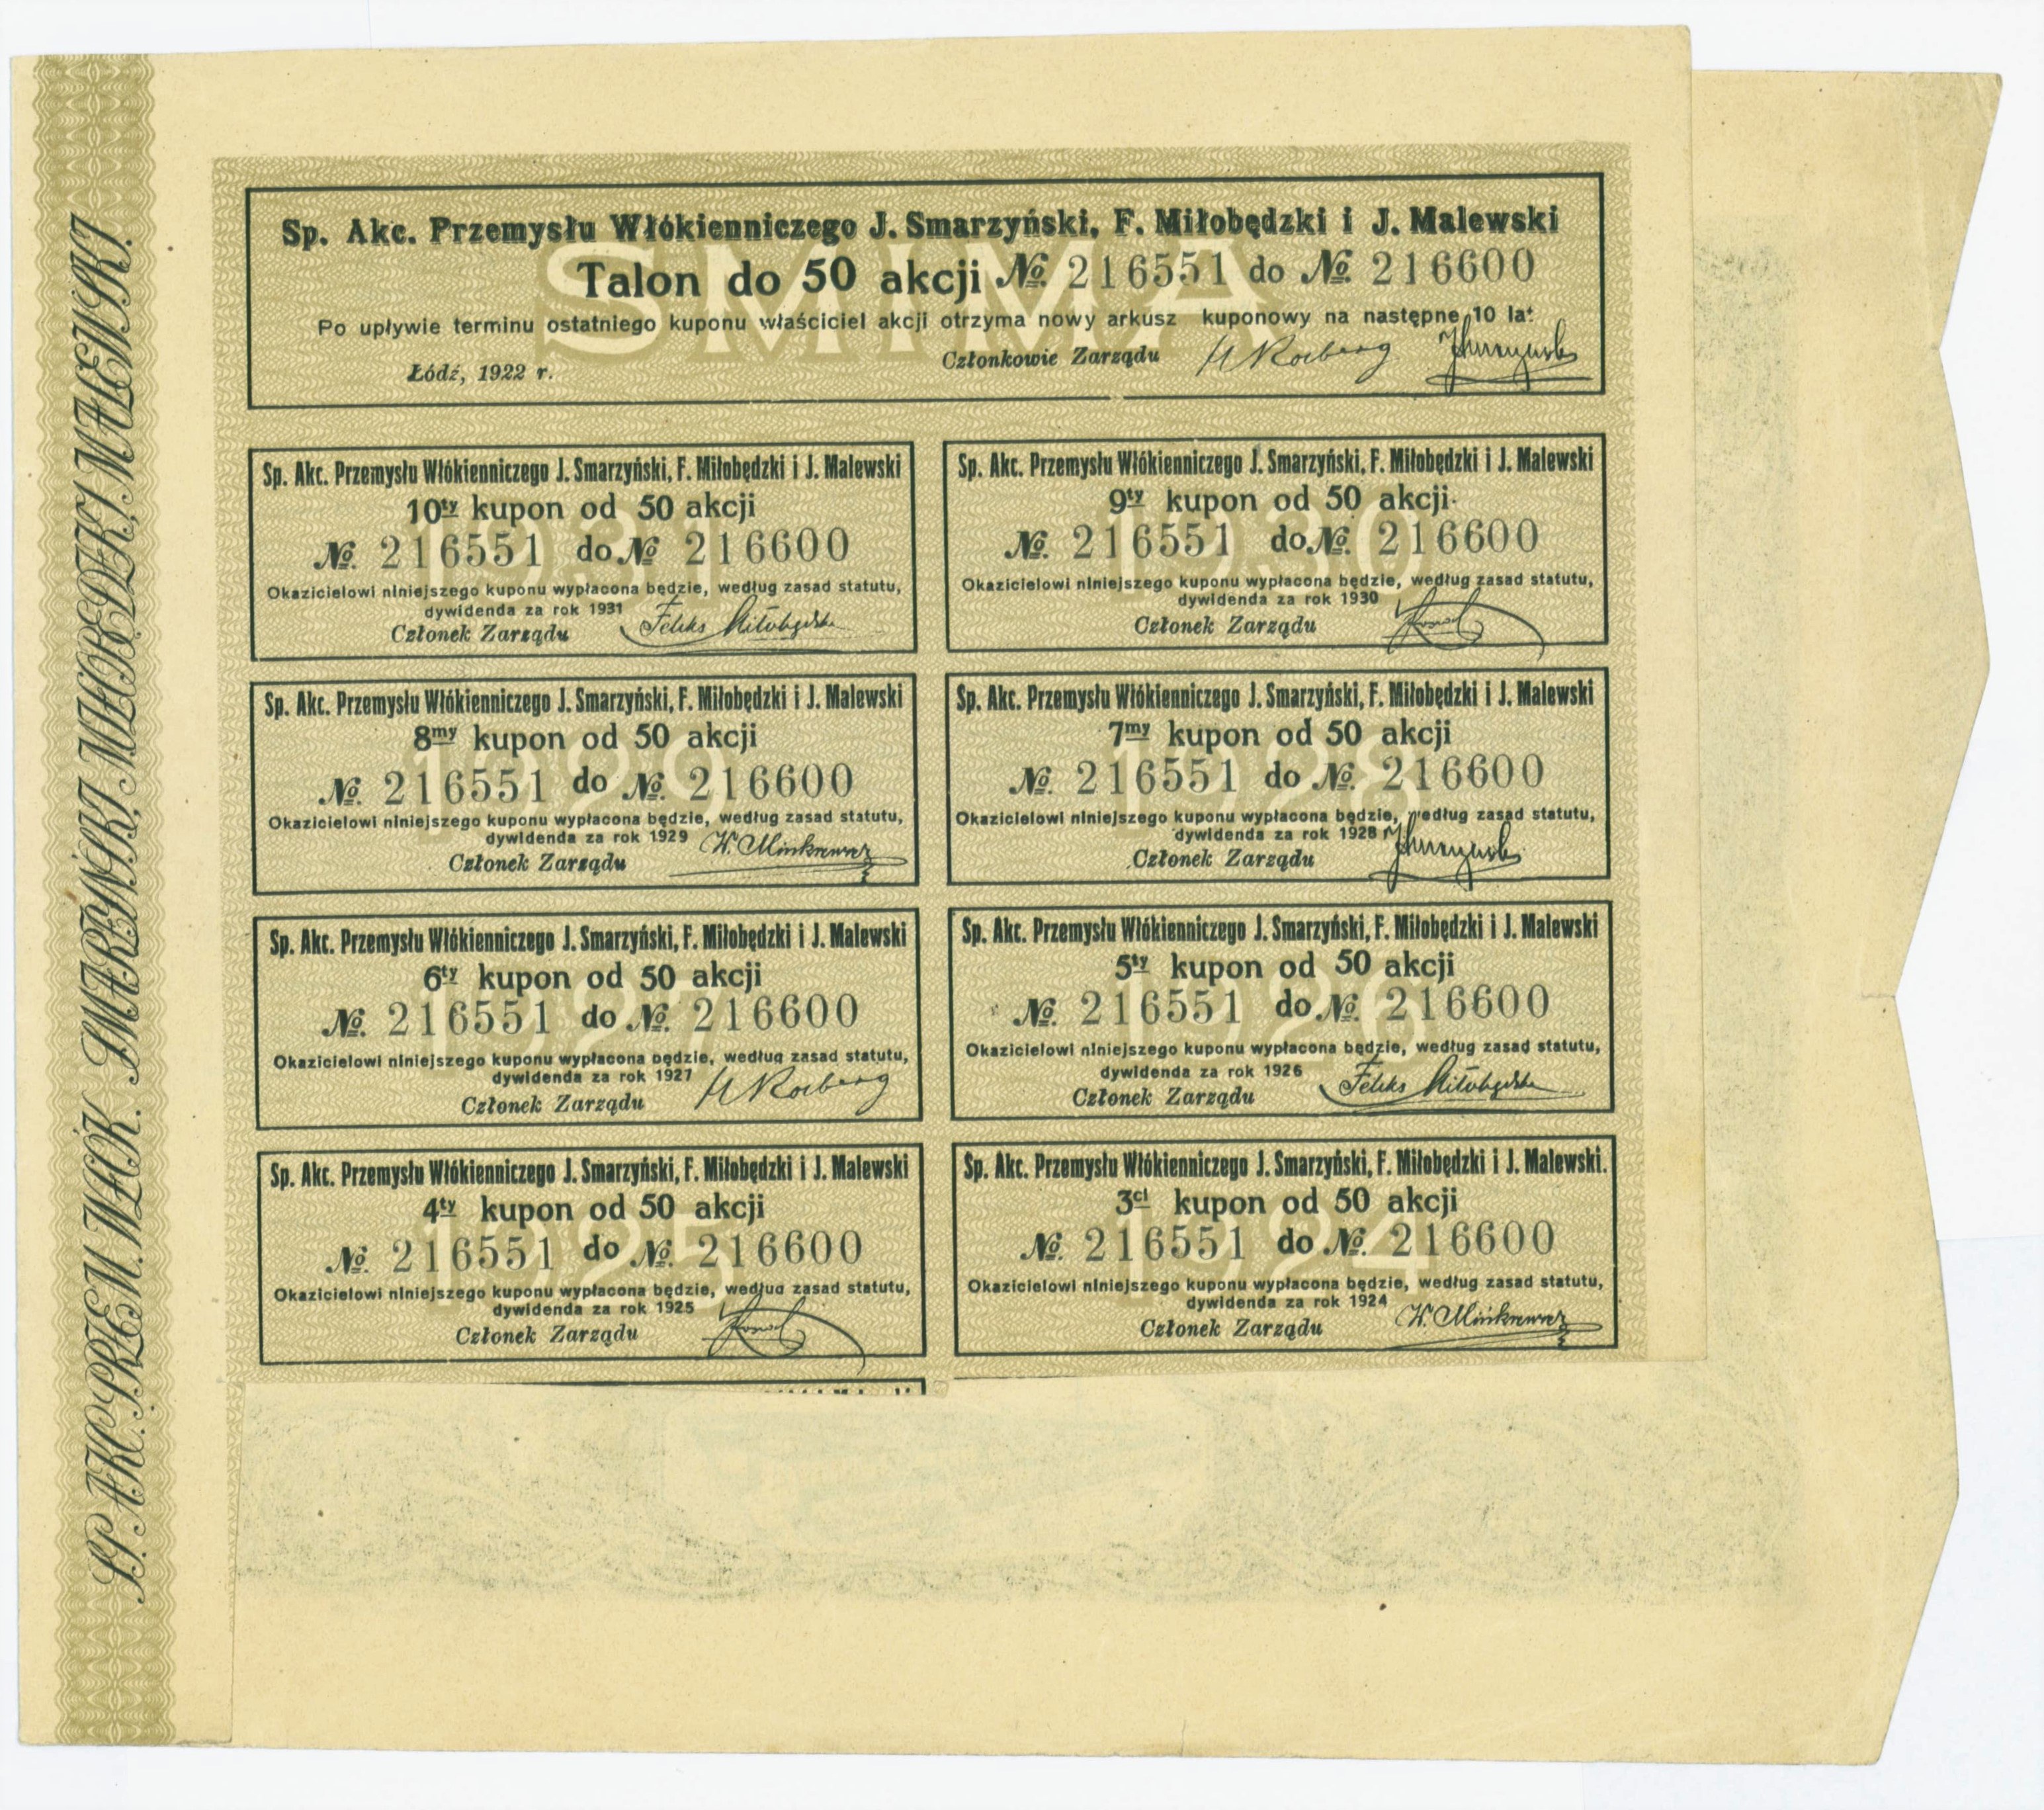 SP. AKC. PRZEM. WŁÓK. SMARZYŃSKI, MIŁOBĘDZKI, MALEWSKI.
SMIMA
Sp. Akc. Przemysłu Włókienniczego J. Smarzyński, F. Miłobędzki i J. Malewski
Talon do 50 akcji No. 216551 do No. 216600
Po upływie terminu ostatniego kuponu właściciel akcji otrzyma nowy arkusz kuponowy na następne 10 lat
Łódź, 1922 r. Członkowie Zarządu
Sp. Akc. Przemysłu Włókienniczego J. Smarzyński, F. Miłobędzki i J. Malewski
10ty kupon od 50 akcji
No. 216551 do No 216600
Okazicielowi niniejszego kuponu wypłacona będzie, według zasad statutu,
dywidenda za rok 1931
Członek Zarządu Feliks Miłobędzki
Sp. Akc. Przemysłu Włókienniczego J. Smarzyński, F. Miłobędzki i J. Malewski
9ty kupon od 50 akcji
No. 216551 do No. 216600
Okazicielowi niniejszego kuponu wypłacona będzie, według zasad statutu,
dywidenda za rok 1930
Członek Zarządu
1930
Sp. Akc. Przemysłu Włókienniczego J. Smarzyński, F. Miłobędzki i J. Malewski
8my kupon od 50 akcji
No. 216551 do No. 216600
Okazicielowi niniejszego kuponu wypłacona będzie, według zasad statutu,
dywidenda za rok 1929
Członek Zarządu
1929
Sp. Akc. Przemysłu Włókienniczego J. Smarzyński, F. Miłobędzki i J. Malewski
7my kupon od 50 akcji
No. 216551 do No. 216600
Okazicielowi niniejszego kuponu wypłacona będzie, według zasad statutu,
dywidenda za rok 1928
Członek Zarządu
1928
Sp. Akc. Przemysłu Włókienniczego J. Smarzyński, F. Miłobędzki i J. Malewski
6ty kupon od 50 akcji
No. 216551 do No. 216600
Okazicielowi niniejszego kuponu wypłacona będzie, według zasad statutu,
dywidenda za rok 1927
Członek Zarządu
1927
Sp. Akc. Przemysłu Włókienniczego J. Smarzyński, F. Miłobędzki i J. Malewski
5ty kupon od 50 akcji
No. 216551 do No. 216600
Okazicielowi niniejszego kuponu wypłacona będzie, według zasad statutu,
dywidenda za rok 1926
Członek Zarządu Feliks Miłobędzki
1926
Sp. Akc. Przemysłu Włókienniczego J. Smarzyński, F. Miłobędzki i J. Malewski
4ty kupon od 50 akcji
No. 216551 do No. 216600
Okazicielowi niniejszego kuponu wypłacona będzie, według zasad statutu,
dywidenda za rok 1925
Członek Zarządu
1925
Sp. Akc. Przemysłu Włókienniczego J. Smarzyński, F. Miłobędzki i J. Malewski.
3ci kupon od 50 akcji
No. 216551 do No. 216600
Okazicielowi niniejszego kuponu wypłacona będzie, według zasad statutu,
dywidenda za rok 1924
Członek Zarządu
1924